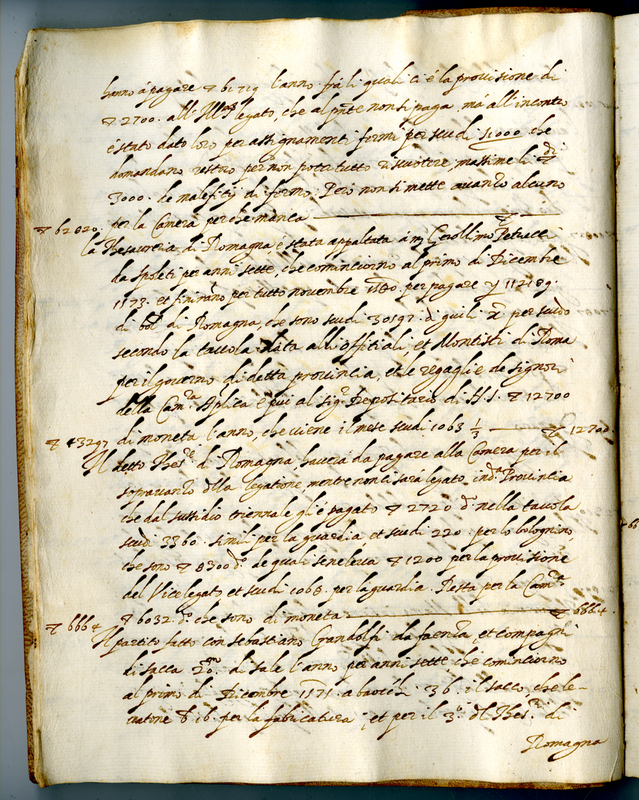 hanno à pagare ▽ 61719 l'anno frà li quali ci è la provisione di
▽ 2700. all' Ill.mo legato, che al pnte non si paga. mà all'incontro
è stato dato loro per assignamenti fermi per scudi 11000 che
domandano restoro per non poter tutto riscuotere, massime li di ▽
3000. de malefitij di fermo. Però non si mette avanzo alcuno
▽ 62020 per la Camera perche manca
la Thesaureria di Romagna è stata appaltata à m. Gerolimo Petrucci
da Spoleti per anni sette, che cominciorno al primo di Dicembre
1573. et finirano per tutto novembre 1580. per pagare 112189.
di bol. di Romagna, che sono scudi 30197. di giulii X per scudo
secondo la tavola data alli offitiali, et Montisti di Roma
per il governo di detta provincia, et le regaglie de signori
della Cam.a Aplica e piu al sig.r Depositario di N.S. ▽ 12700
▽ 43297 di moneta l'anno, che viene il mese scudi 1063 1/3 — ▽ 12700
Il detto Thes.re di Romagna, haveria da pagare alla Camera per il
sopravanzo della legatione mentre non ci sarà legato, in d.a Provincia
che dal sussidio triennale gli è pagato ▽ 2720 d. nella tavola
scudi 3360. simili per la guardia et scudi 220. per lo bolognino
che sono ▽ 8300 d. de quali se ne leva ▽ 1200 per la provisione
del Vicelegato et scudi 1068. per la guardia. Resta per la Cam.a
▽ 6664 ▽ 6032. d. che sono di moneta — ▽ 6664
Il partito fatto con sebastiano Grandolfi da faenza, et compagni
di sacca 20. di sale l'anno per anni sette che cominciorno
al primo di Dicembre 1571. a baiocchi 36. il sacco, che le-
vatone 16. per la fabricatura, et per il 3.o del Thes.re di
Romagna